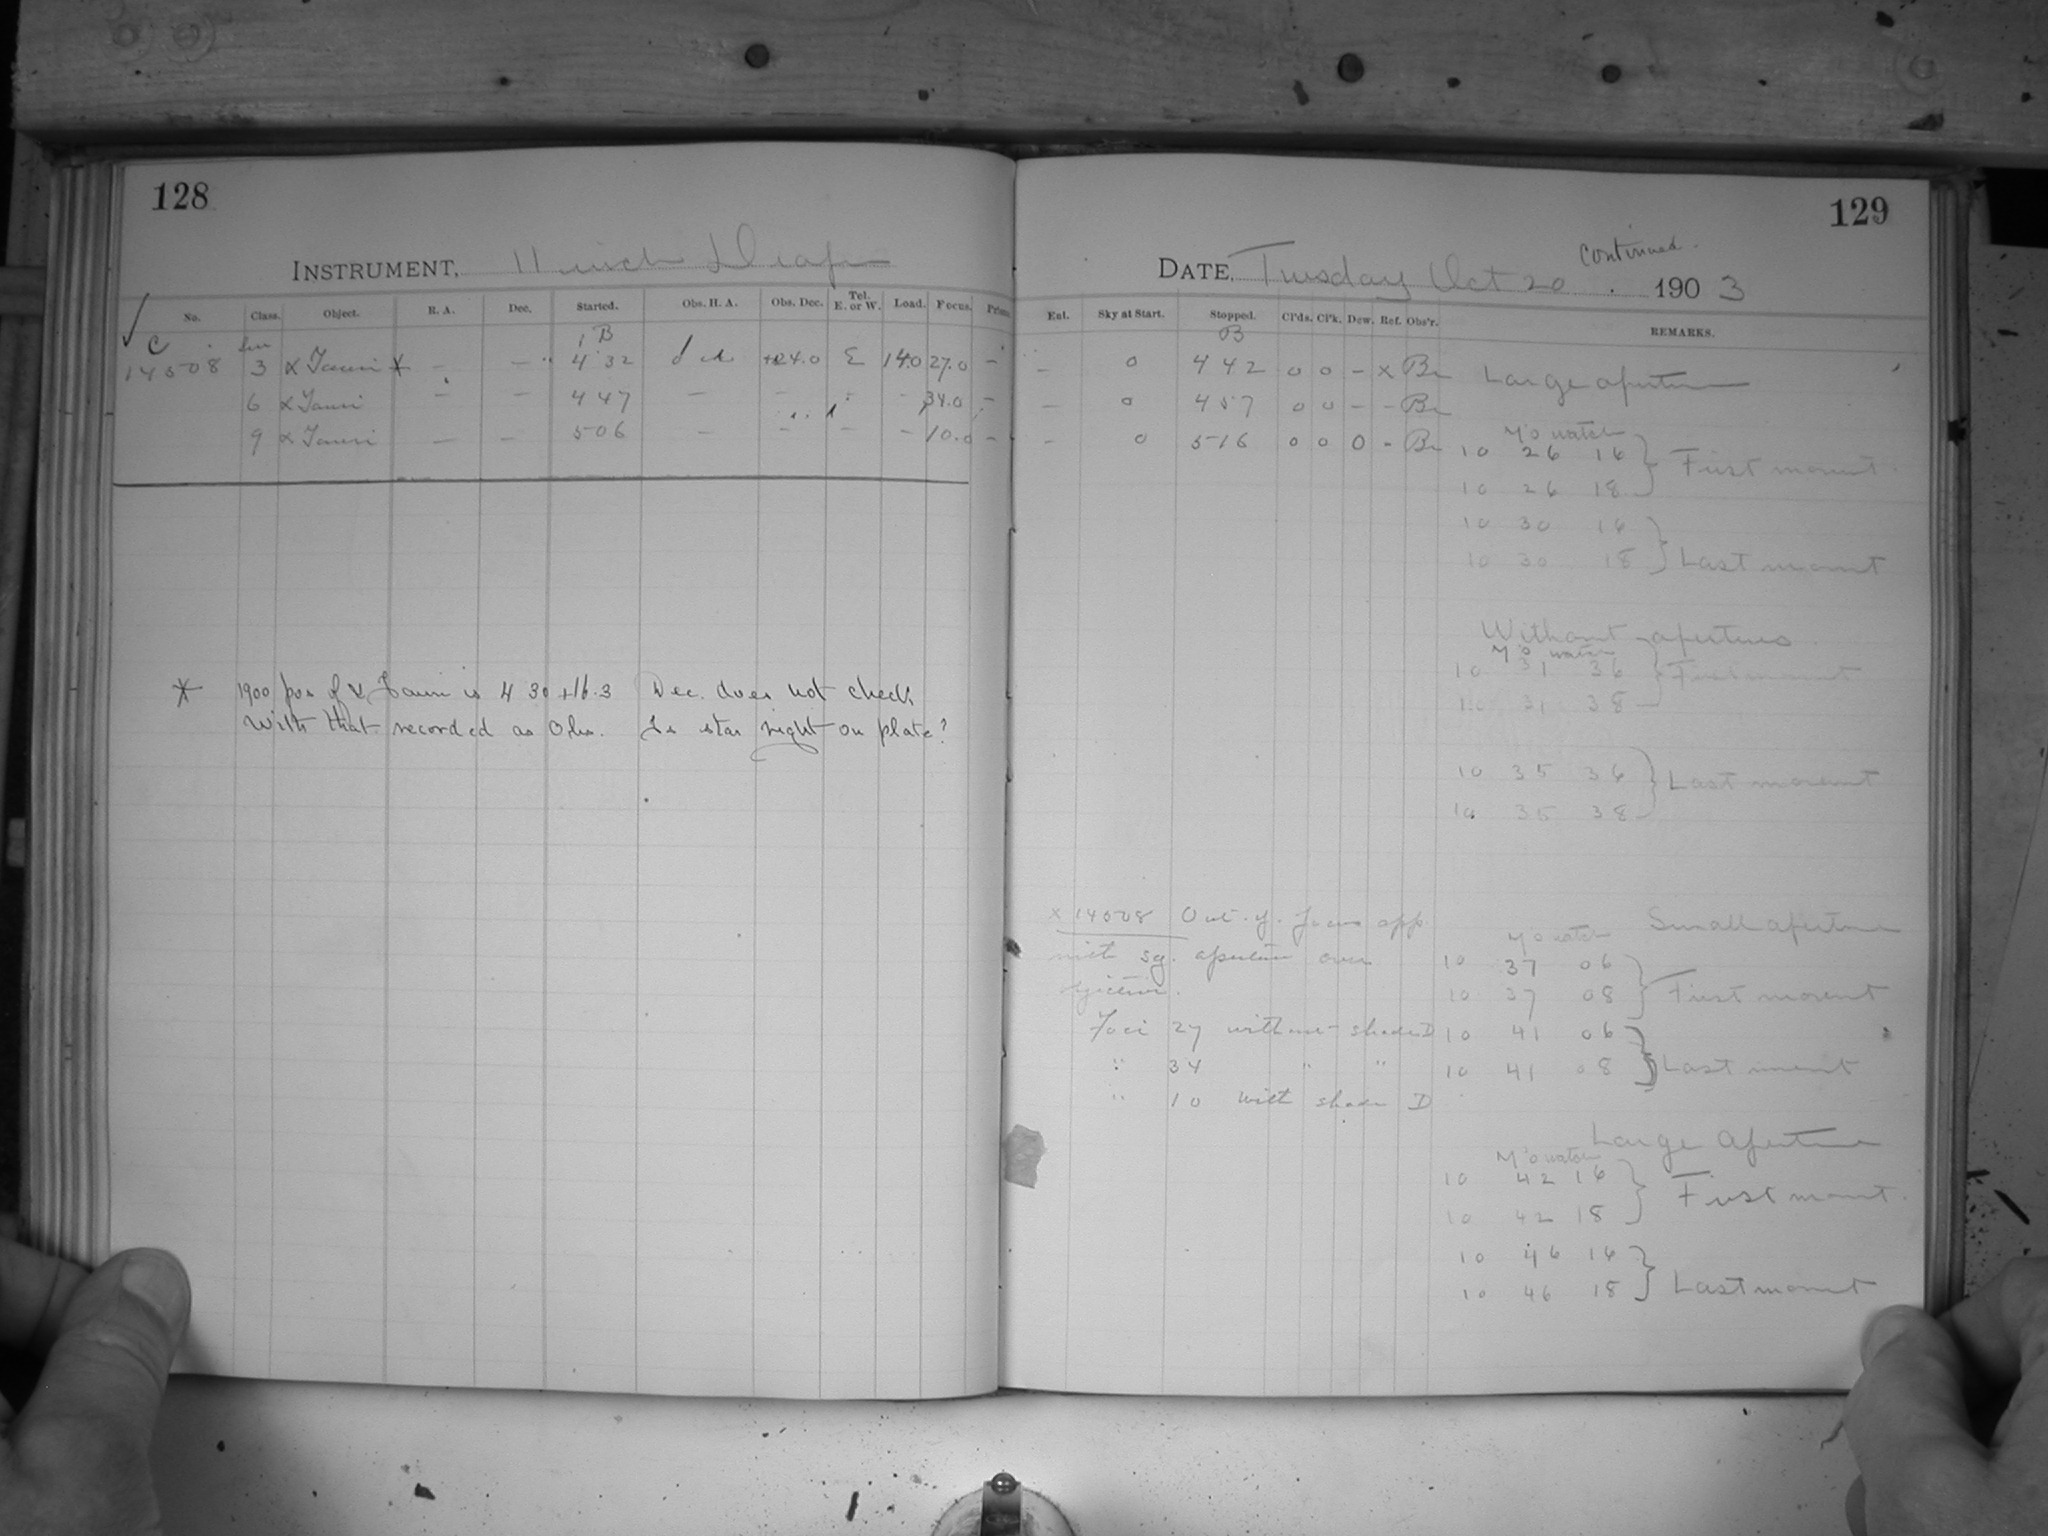 128
INSTRUMENT, 11 inch Draper
No. Class. Object. R. A. Dec. Started. Obs. H. A. Obs. Dec. Tel. E. or W. Load. Focus. Prism.
B
C
14508 3 α Tauri * - - 4 32 +24.0 E 140 27.0 -
6 α Tauri - - 4 47 - - - 34.0 -
9 α Tauri - - 5 06 - - - - 10.0 -
* 1900 pos of α Tauri is 4 30 +16.3 Dec. does not check
with that recorded as Obs. Is star right on plate?
129
continued.
DATE, Tuesday Oct 20. 1903
Ent. Sky at Start. Stopped. Cl'ds. Cl'k. Dew. Ref. Obs'r. REMARKS.
B
- 0 4 42 0 0 - x Br Large aperture
- 0 4 57 0 0 - - Br
- 0 5 16 0 0 0 - Br
watch
10 26 16 First
10 26 18
10 30 16
10 30 18 Last
Without apertures
10 31 36 First
10 31 38
10 35 36 Last
10 35 38
x 14508 Out of focus app. Small aperture
with sq. aperture over
objective.
watch
10 37 06
10 37 08 First
Foci 27 without shade D 10 41 06
" 34 " " 10 41 08 Last
" 10 with shade D
Large Aperture
watch
10 42 16 First
10 42 18
10 46 16
10 46 18 Last